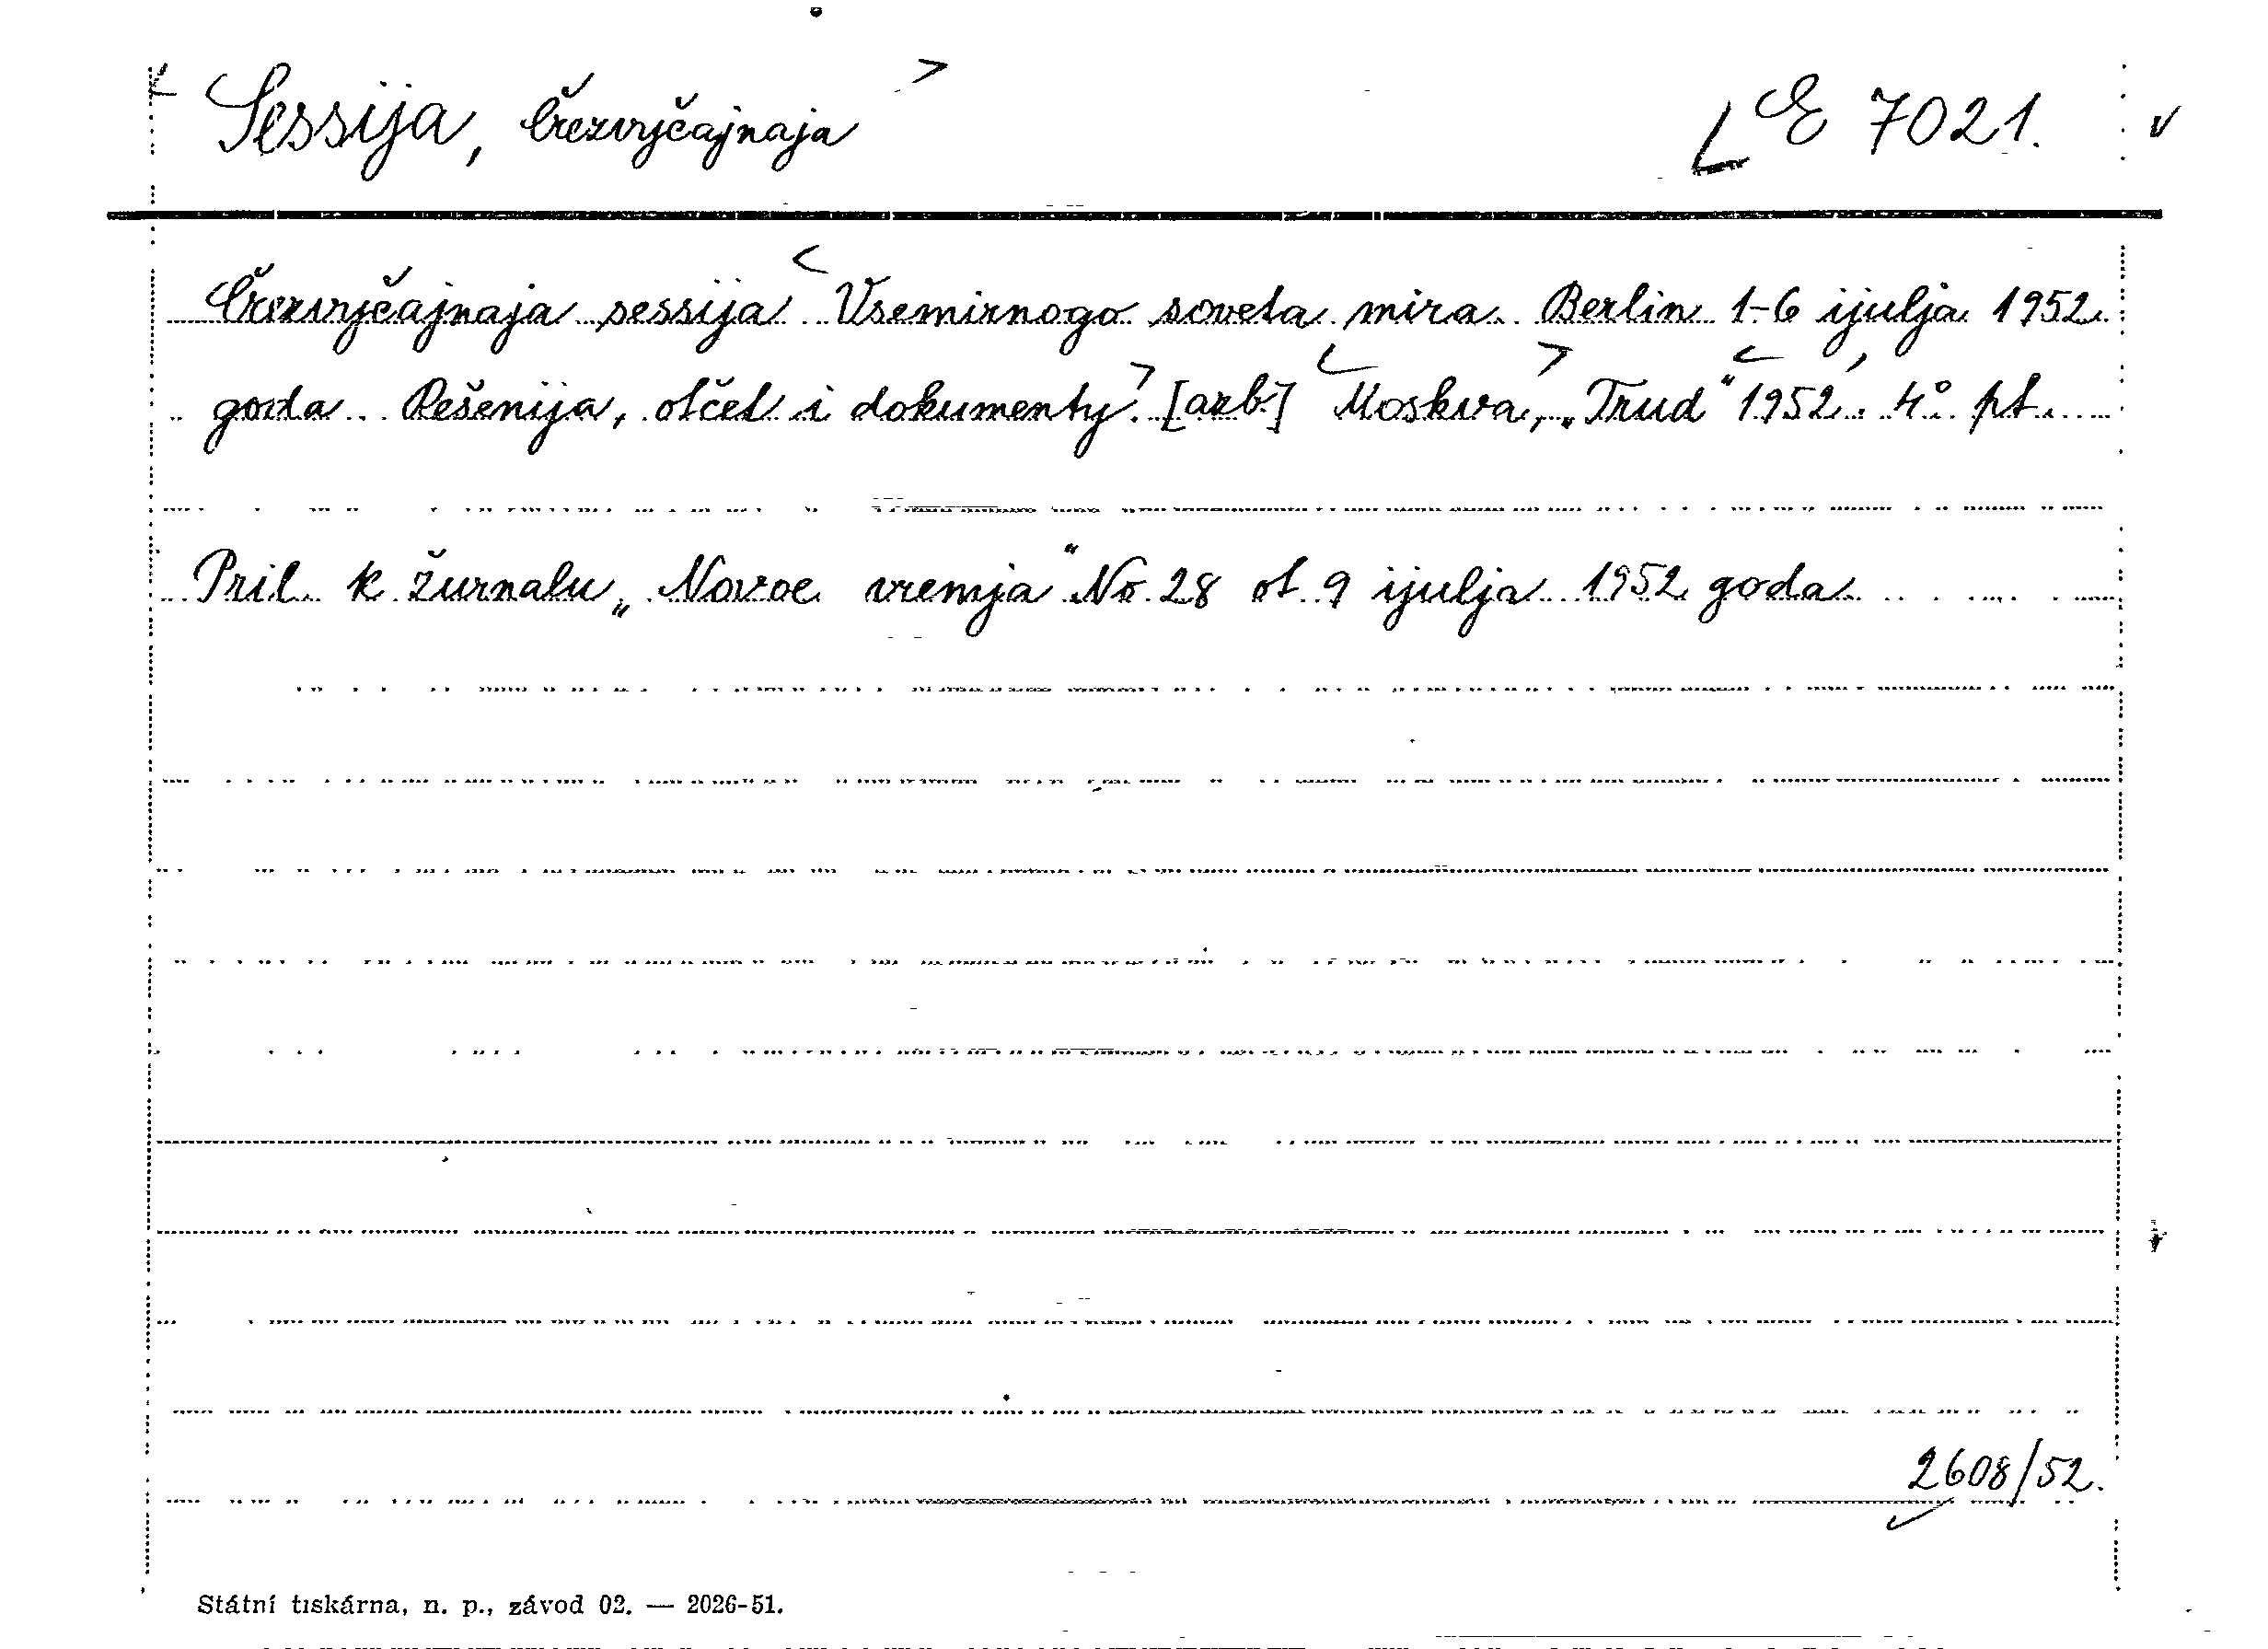 Sessija, Črezvyčajnaja E 7021.
Črezvyčajnaja sessija Vsemirnogo soveta mira. Berlin 1-6 ijulja 1952
goda. Rešenija, otčet i dokumenty. [azb.] Moskva, „Trud“ 1952. 4° pt.
Pril. k žurnalu „Novoe vremja“ No 28 ot 9 ijulja 1952 goda
2608/52.
Státní tiskárna, n. p., závod 02. — 2026-51.